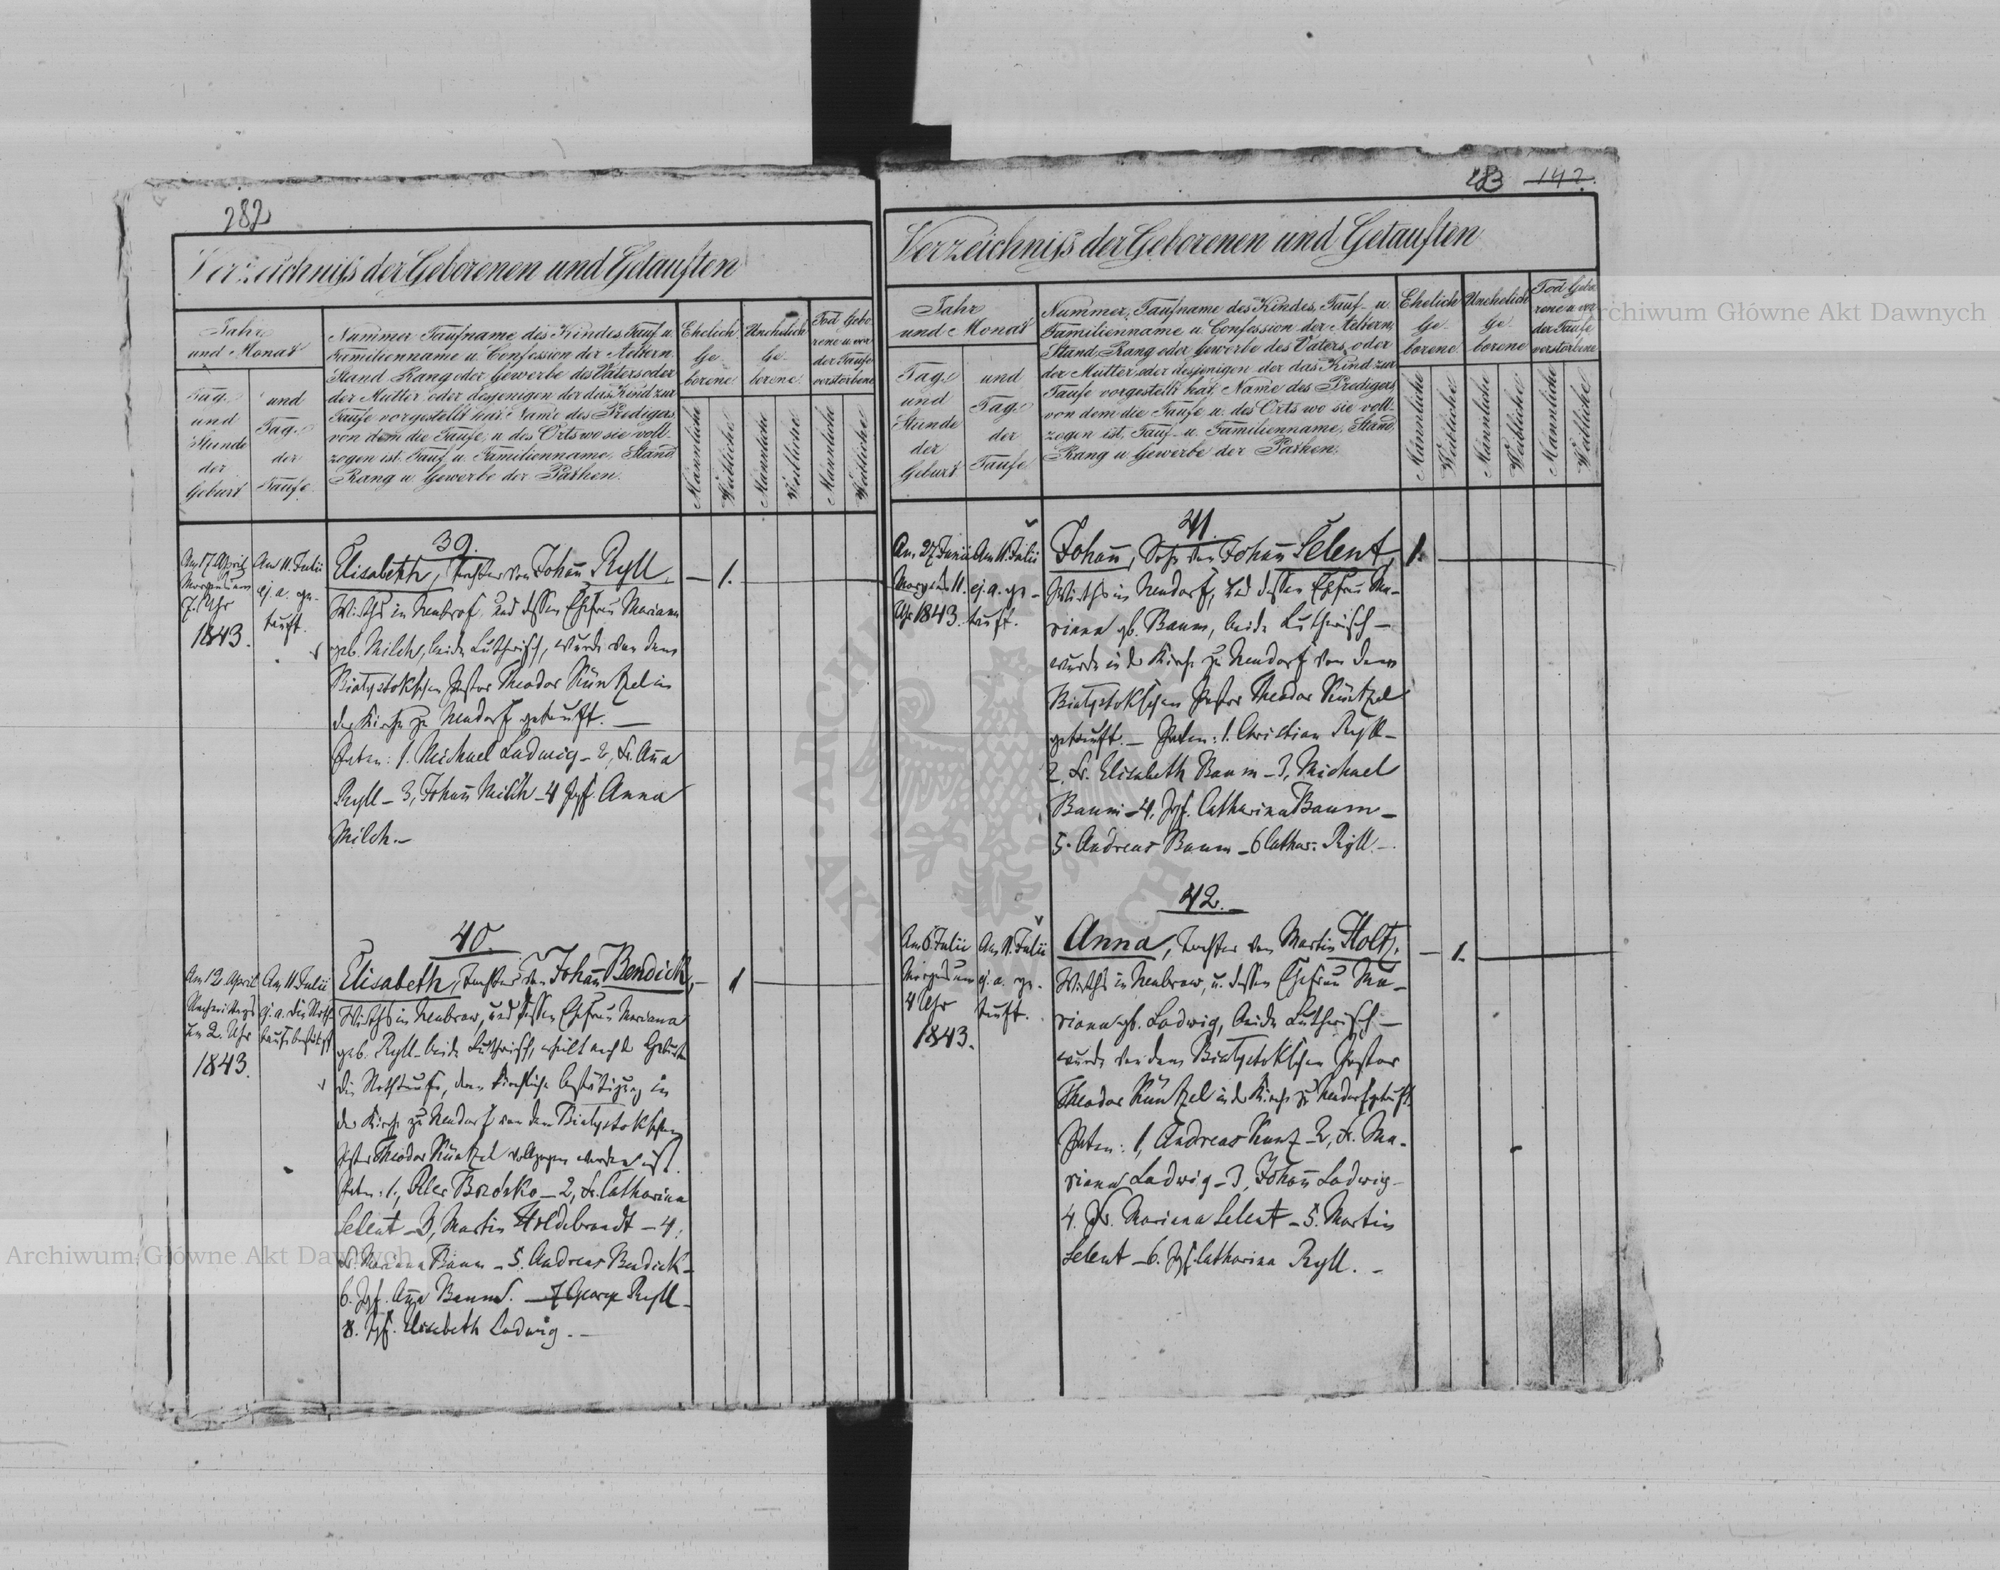 282
Verzeichniß der Geborenen und Getauften
Jahr
und Monat
Tag
und
Stunde
der
Geburt
und
Tag
der
Taufe
Nummer, Taufname des Kindes, Tauf u.
Familienname u. Confession der Aeltern,
Stand, Rang oder Gewerbe des Vaters oder
der Mutter, oder desjenigen der das Kind zur
Taufe vorgestellt hat, Name des Predigers,
von dem die Taufe, u. des Orts wo sie voll-
zogen ist, Tauf u. Familienname, Stand,
Rang u. Gewerbe der Pathen.
Ehelich
Ge-
borene
Unehelich
Ge-
borene
Tod Gebo-
rene u. vor
der Taufe
verstorbene
Männliche
Weibliche
Männliche
Weibliche
Männliche
Weibliche
Am 17 April
Morgens um
7. Uhr
1843.
Am 11. Julii
ej. a. ge-
tauft.
39.
Elisabeth, Tochter von Johañ Ryll,
Wirths in und dessen Ehefrau Mariana
geb. Milch, beide Lutherisch, wurde von dem
Bialystokschen Pastor Theodor Küntzel in
der Kirche zu Neudorf getauft. —
Paten: 1. Michael Ludwig – 2, Fr. Aña
Ryll – 3, Johañ Milch – 4 Jgf. Anna
Milch. –
— 1.
Am 12. April
Nachmittags
um 2. Uhr
1843.
Am 11 Julii
ej. a. die Noth-
taufe bestätigt
40.
Elisabeth, Tochter von Johañ Bendick,
Wirths in Neubrow, und dessen Ehefrau Mariana
geb. Ryll – beide Lutherisch, erhielt nach der Geburt
die Nothtaufe, deren kirchliche Bestätigung in
der Kirche zu Neudorf von dem Bialystokschen
Pastor Theodor Küntzel vollzogen worden ist.
Paten: 1., – 2, Fr. Catharina
Selent – 3, Martin Hildebrandt – 4,
Fr. Mariana Baum – 5. Andreas Bendick –
6. Jgf. Aña Baum. – 7 George Ryll –
8. Jgf. Elisabeth Ludwig. –
— 1
283 142.
Verzeichniß der Geborenen und Getauften
Jahr
und Monat
Tag
und
Stunde
der
Geburt
und
Tag
der
Taufe
Nummer, Taufname des Kindes, Tauf- u.
Familienname u. Confession der Aeltern,
Stand, Rang oder Gewerbe des Vaters, oder
der Mutter, oder desjenigen der das Kind zur
Taufe vorgestellt hat, Name des Predigers,
von dem die Taufe u. des Orts wo sie voll-
zogen ist, Tauf- u. Familienname, Stand,
Rang u. Gewerbe der Pathen.
Ehelich
Ge-
borene
Unehelich
Ge-
borene
Tod Gebo-
rene u. vor
der Taufe
verstorbene
Männliche
Weibliche
Männliche
Weibliche
Männliche
Weibliche
Am 27 Junii
Morgens 11.
Uhr 1843.
Am 11. Julii
ej. a. ge-
tauft.
41.
Johañ, Sohn von Johañ Selent,
Wirths in Neudorf, und dessen Ehefrau Ma-
riana gb. Baum, beide Lutherisch –
wurde in der Kirche zu Neudorf von dem
Bialystokschen Pastor Theodor Küntzel
getauft. – Paten: 1. Christian Ryll –
2. Fr. Elisabeth Baum – 3, Michael
Baum – 4, Jgf. Catharina Baum –
5. Andreas Baum – 6 Cathar. Ryll. –
1.
Am 6 Julii
Morgens um
4 Uhr
1843.
Am 11. Julii
ej. a. ge-
tauft.
42.
Anna, Tochter von Martin Holtz,
Wirths in Neubrow, u. dessen Ehefrau Ma-
riana gb. Ludwig, beide Lutherisch –
wurde von dem Bialystokschen Pastor
Theodor Küntzel in der Kirche zu Neudorf getauft.
Paten: 1, Andreas Kunz – 2, Fr. Ma-
riana Ludwig – 3, Johañ Ludwig –
4. Fr. Mariana Selent – 5. Martin
Selent – 6. Jgf. Catharina Ryll. –
— 1.
Archiwum Główne Akt Dawnych
Archiwum Główne Akt Dawnych